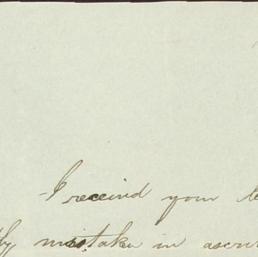 I received your le
ly mistaken in ascri